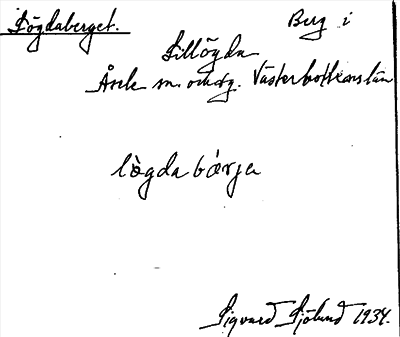 Lögdaberget. Berg i
Lillögda
Åsele sn. o. hd. Västerbottens län
lö̀gda bǽrje
Sigvard Sjölund 1934.